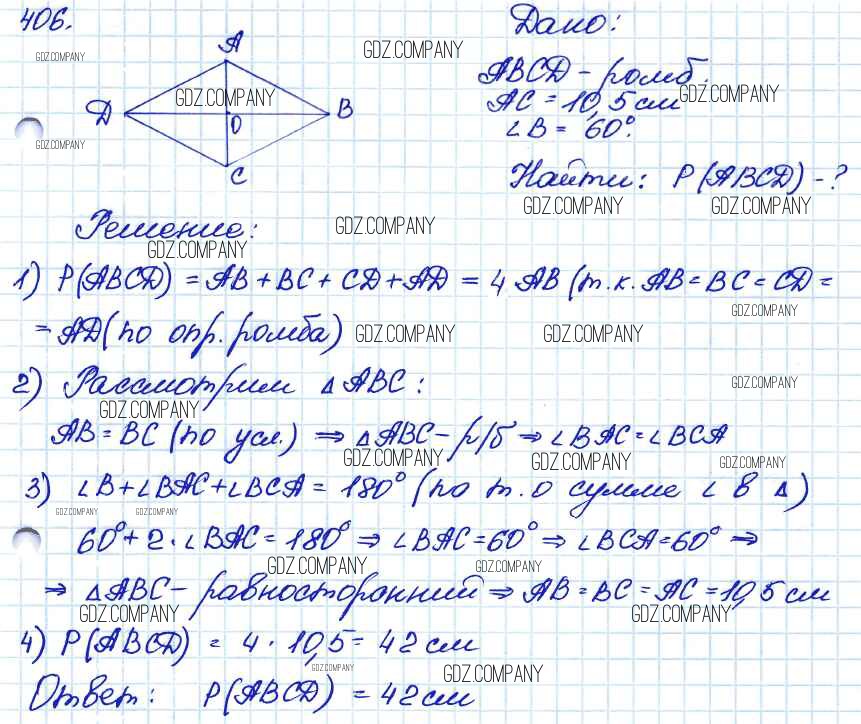 406.
Дано:
A
GDZ.COMPANY
GDZ.COMPANY
ABCD - ромб.
GDZ.COMPANY
AC = 10,5 см
GDZ.COMPANY
Д
B
O
∠B = 60°.
GDZ.COMPANY
C
Найти: P(ABCD) - ?
GDZ.COMPANY
GDZ.COMPANY
Решение:
GDZ.COMPANY
GDZ.COMPANY
1) P(ABCD) = AB + BC + CD + AD = 4 AB (т.к. AB = BC = CD =
GDZ.COMPANY
= AD (по опр. ромба)
GDZ.COMPANY
GDZ.COMPANY
2) Рассмотрим △ABC:
GDZ.COMPANY
GDZ.COMPANY
AB = BC (по усл.) ⇒ △ABC - р/б ⇒ ∠BAC = ∠BCA
GDZ.COMPANY
GDZ.COMPANY
GDZ.COMPANY
3) ∠B + ∠BAC + ∠BCA = 180° (по т. о сумме ∠ в △)
GDZ.COMPANY
GDZ.COMPANY
60° + 2 · ∠BAC = 180° ⇒ ∠BAC = 60° ⇒ ∠BCA = 60° ⇒
GDZ.COMPANY
GDZ.COMPANY
⇒ △ABC - равносторонний ⇒ AB = BC = AC = 10,5 см
GDZ.COMPANY
GDZ.COMPANY
4) P(ABCD) = 4 · 10,5 = 42 см
GDZ.COMPANY
GDZ.COMPANY
Ответ: P(ABCD) = 42 см